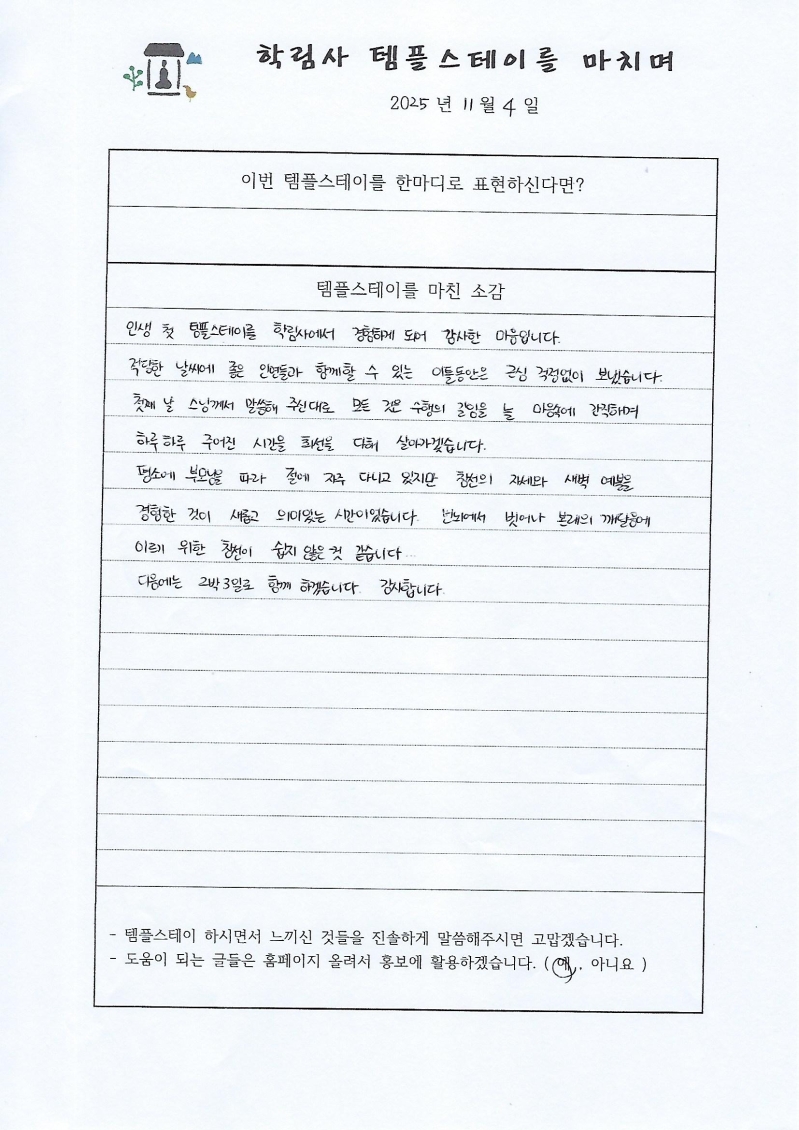 학림사 템플스테이를 마치며
2025년 11월 4일
이번 템플스테이를 한마디로 표현하신다면?
템플스테이를 마친 소감
인생 첫 템플스테이를 학림사에서 경험하게 되어 감사한 마음입니다.
적당한 날씨에 좋은 인연들과 함께할 수 있는 이틀동안은 근심 걱정없이 보냈습니다.
첫째 날 스님께서 말씀해 주신대로 모든 것은 수행의 길임을 늘 마음속에 간직하며
하루하루 주어진 시간을 최선을 다해 살아가겠습니다.
평소에 부모님을 따라 절에 자주 다니고 있지만 참선의 자세와 새벽 예불을
경험한 것이 새롭고 의미있는 시간이었습니다. 번뇌에서 벗어나 본래의 깨달음에
이르기 위한 참선이 쉽지 않은 것 같습니다...
다음에는 2박3일로 함께 하겠습니다. 감사합니다.
- 템플스테이 하시면서 느끼신 것들을 진솔하게 말씀해주시면 고맙겠습니다.
- 도움이 되는 글들은 홈페이지 올려서 홍보에 활용하겠습니다. ( 예 , 아니요 )